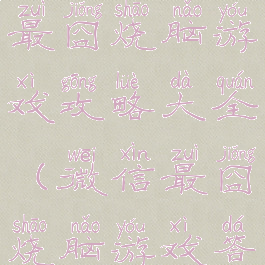 zuì jiǒng shāo nǎo yóu
最囧烧脑游
xì gōng lüè dà quán
戏攻略大全
wēi xìn zuì jiǒng
（微信最囧
shāo nǎo yóu xì dá
烧脑游戏答